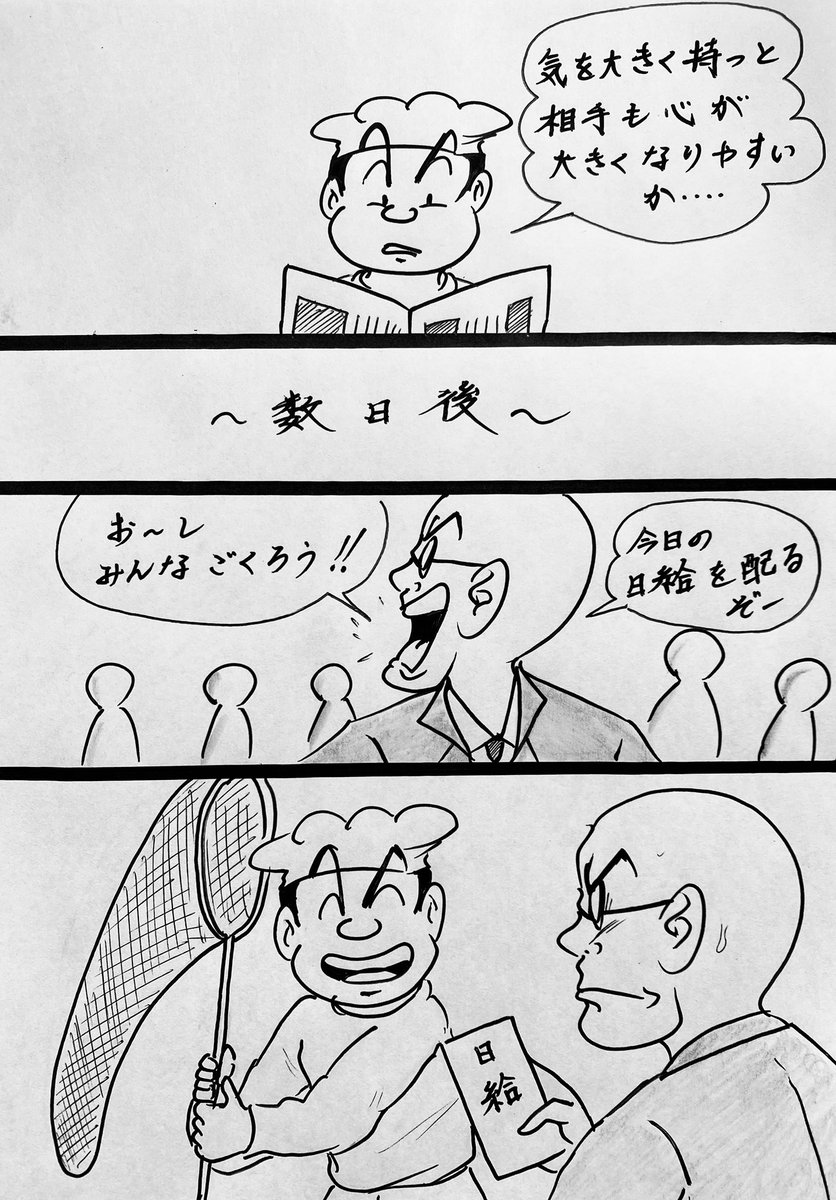 気を大きく持っと
相手も心が
大きくなりやすい
か‥‥
～数日後～
お～し
みんなごくろう!!
今日の
日給を配る
ぞー
日給